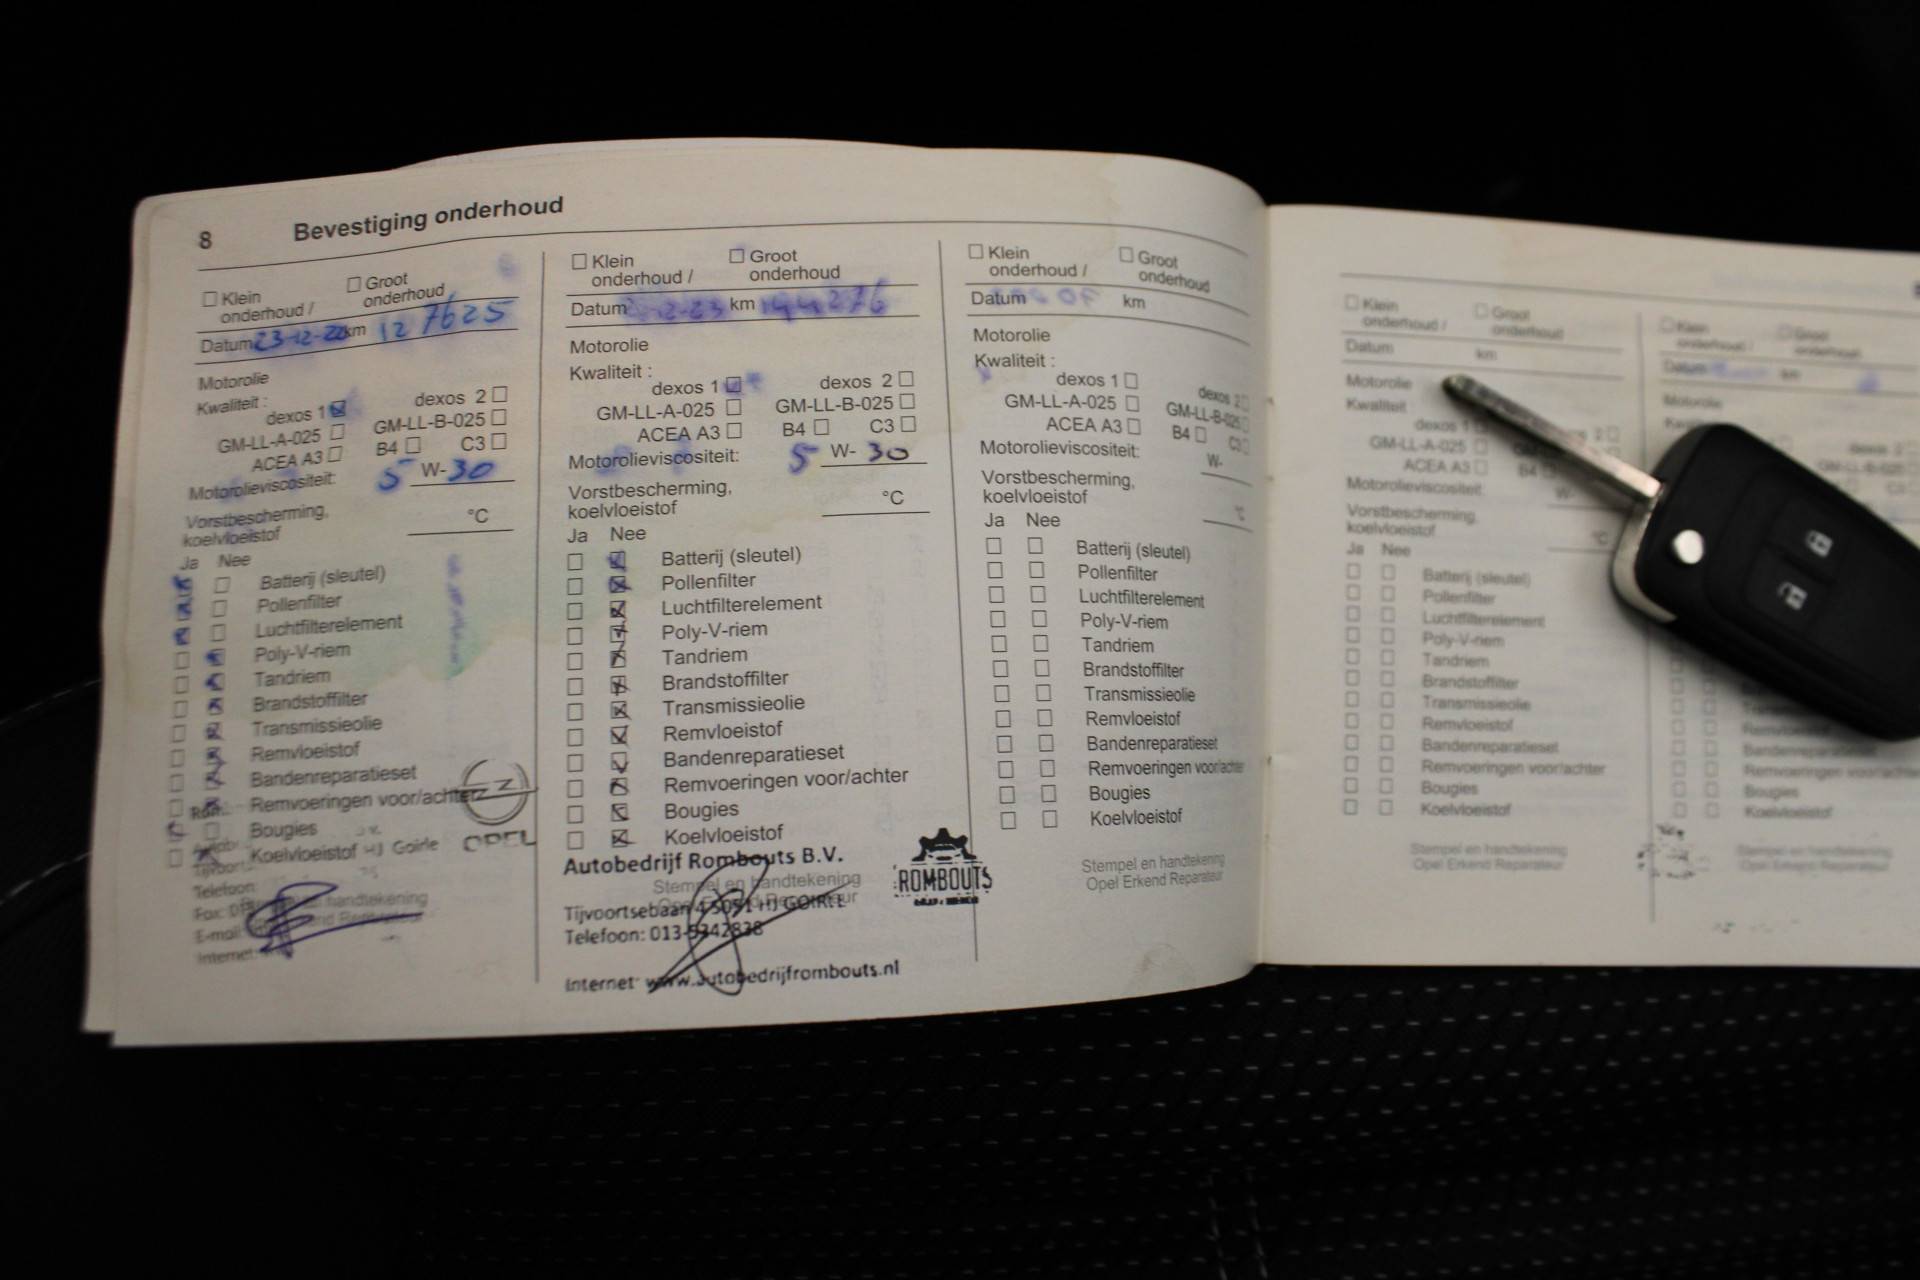 8 Bevestiging onderhoud
Klein onderhoud /
Groot onderhoud
Datum 23-12-22 km 127625
Motorolie
Kwaliteit :
dexos 1 dexos 2
GM-LL-A-025 GM-LL-B-025
ACEA A3 B4 C3
Motorolieviscositeit: 5 W- 30
Vorstbescherming,
koelvloeistof °C
Ja Nee
Batterij (sleutel)
Pollenfilter
Luchtfilterelement
Poly-V-riem
Tandriem
Brandstoffilter
Transmissieolie
Remvloeistof
Bandenreparatieset
Remvoeringen voor/achter
Bougies
Koelvloeistof
HJ Goirle
OPEL
Telefoon
Fax:
E-mail:
Internet:
Klein onderhoud /
Groot onderhoud
Datum 12-23 km 144276
Motorolie
Kwaliteit :
dexos 1 dexos 2
GM-LL-A-025 GM-LL-B-025
ACEA A3 B4 C3
Motorolieviscositeit: 5 W- 30
Vorstbescherming,
koelvloeistof °C
Ja Nee
Batterij (sleutel)
Pollenfilter
Luchtfilterelement
Poly-V-riem
Tandriem
Brandstoffilter
Transmissieolie
Remvloeistof
Bandenreparatieset
Remvoeringen voor/achter
Bougies
Koelvloeistof
Autobedrijf Rombouts B.V.
Stempel en handtekening
Tijvoortsebaan 4 5051 HJ GOIRLE
Telefoon: 013-5342838
Internet: www.autobedrijfrombouts.nl
ROMBOUTS
Klein onderhoud /
Groot onderhoud
Datum km
Motorolie
Kwaliteit :
dexos 1 dexos 2
GM-LL-A-025 GM-LL-B-025
ACEA A3 B4 C3
Motorolieviscositeit: W-
Vorstbescherming,
koelvloeistof °C
Ja Nee
Batterij (sleutel)
Pollenfilter
Luchtfilterelement
Poly-V-riem
Tandriem
Brandstoffilter
Transmissieolie
Remvloeistof
Bandenreparatieset
Remvoeringen voor/achter
Bougies
Koelvloeistof
Stempel en handtekening
Opel Erkend Reparateur
Klein onderhoud /
Groot onderhoud
Datum km
Motorolie
Kwaliteit
dexos 1
GM-LL-A-025
ACEA A3 B4
Motorolieviscositeit: W-
Vorstbescherming,
koelvloeistof °C
Ja Nee
Batterij (sleutel)
Pollenfilter
Luchtfilterelement
Poly-V-riem
Tandriem
Brandstoffilter
Transmissieolie
Remvloeistof
Bandenreparatieset
Remvoeringen voor/achter
Bougies
Koelvloeistof
Stempel en handtekening
Opel Erkend Reparateur
Klein onderhoud /
Groot onderhoud
Datum km
Motorolie
Remvloeistof
Bandenreparatieset
Remvoeringen voor/achter
Bougies
Koelvloeistof
Stempel en handtekening
Opel Erkend Reparateur